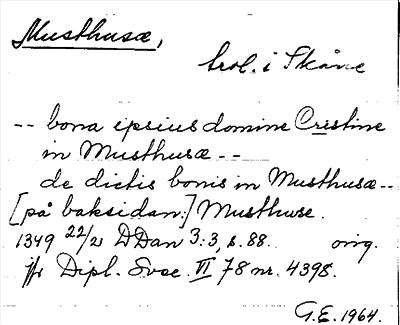 Musthusæ,
trol. i Skåne
-- bona ipsius domine Cristine
in Musthusæ --
de dictis bonis in Musthusæ--
[på baksidan:] Musthuse.
1349 22/2 DDan 3:3, s. 88. orig.
jfr Dipl. Svec. VI 78 nr. 4398.
G.E. 1964.